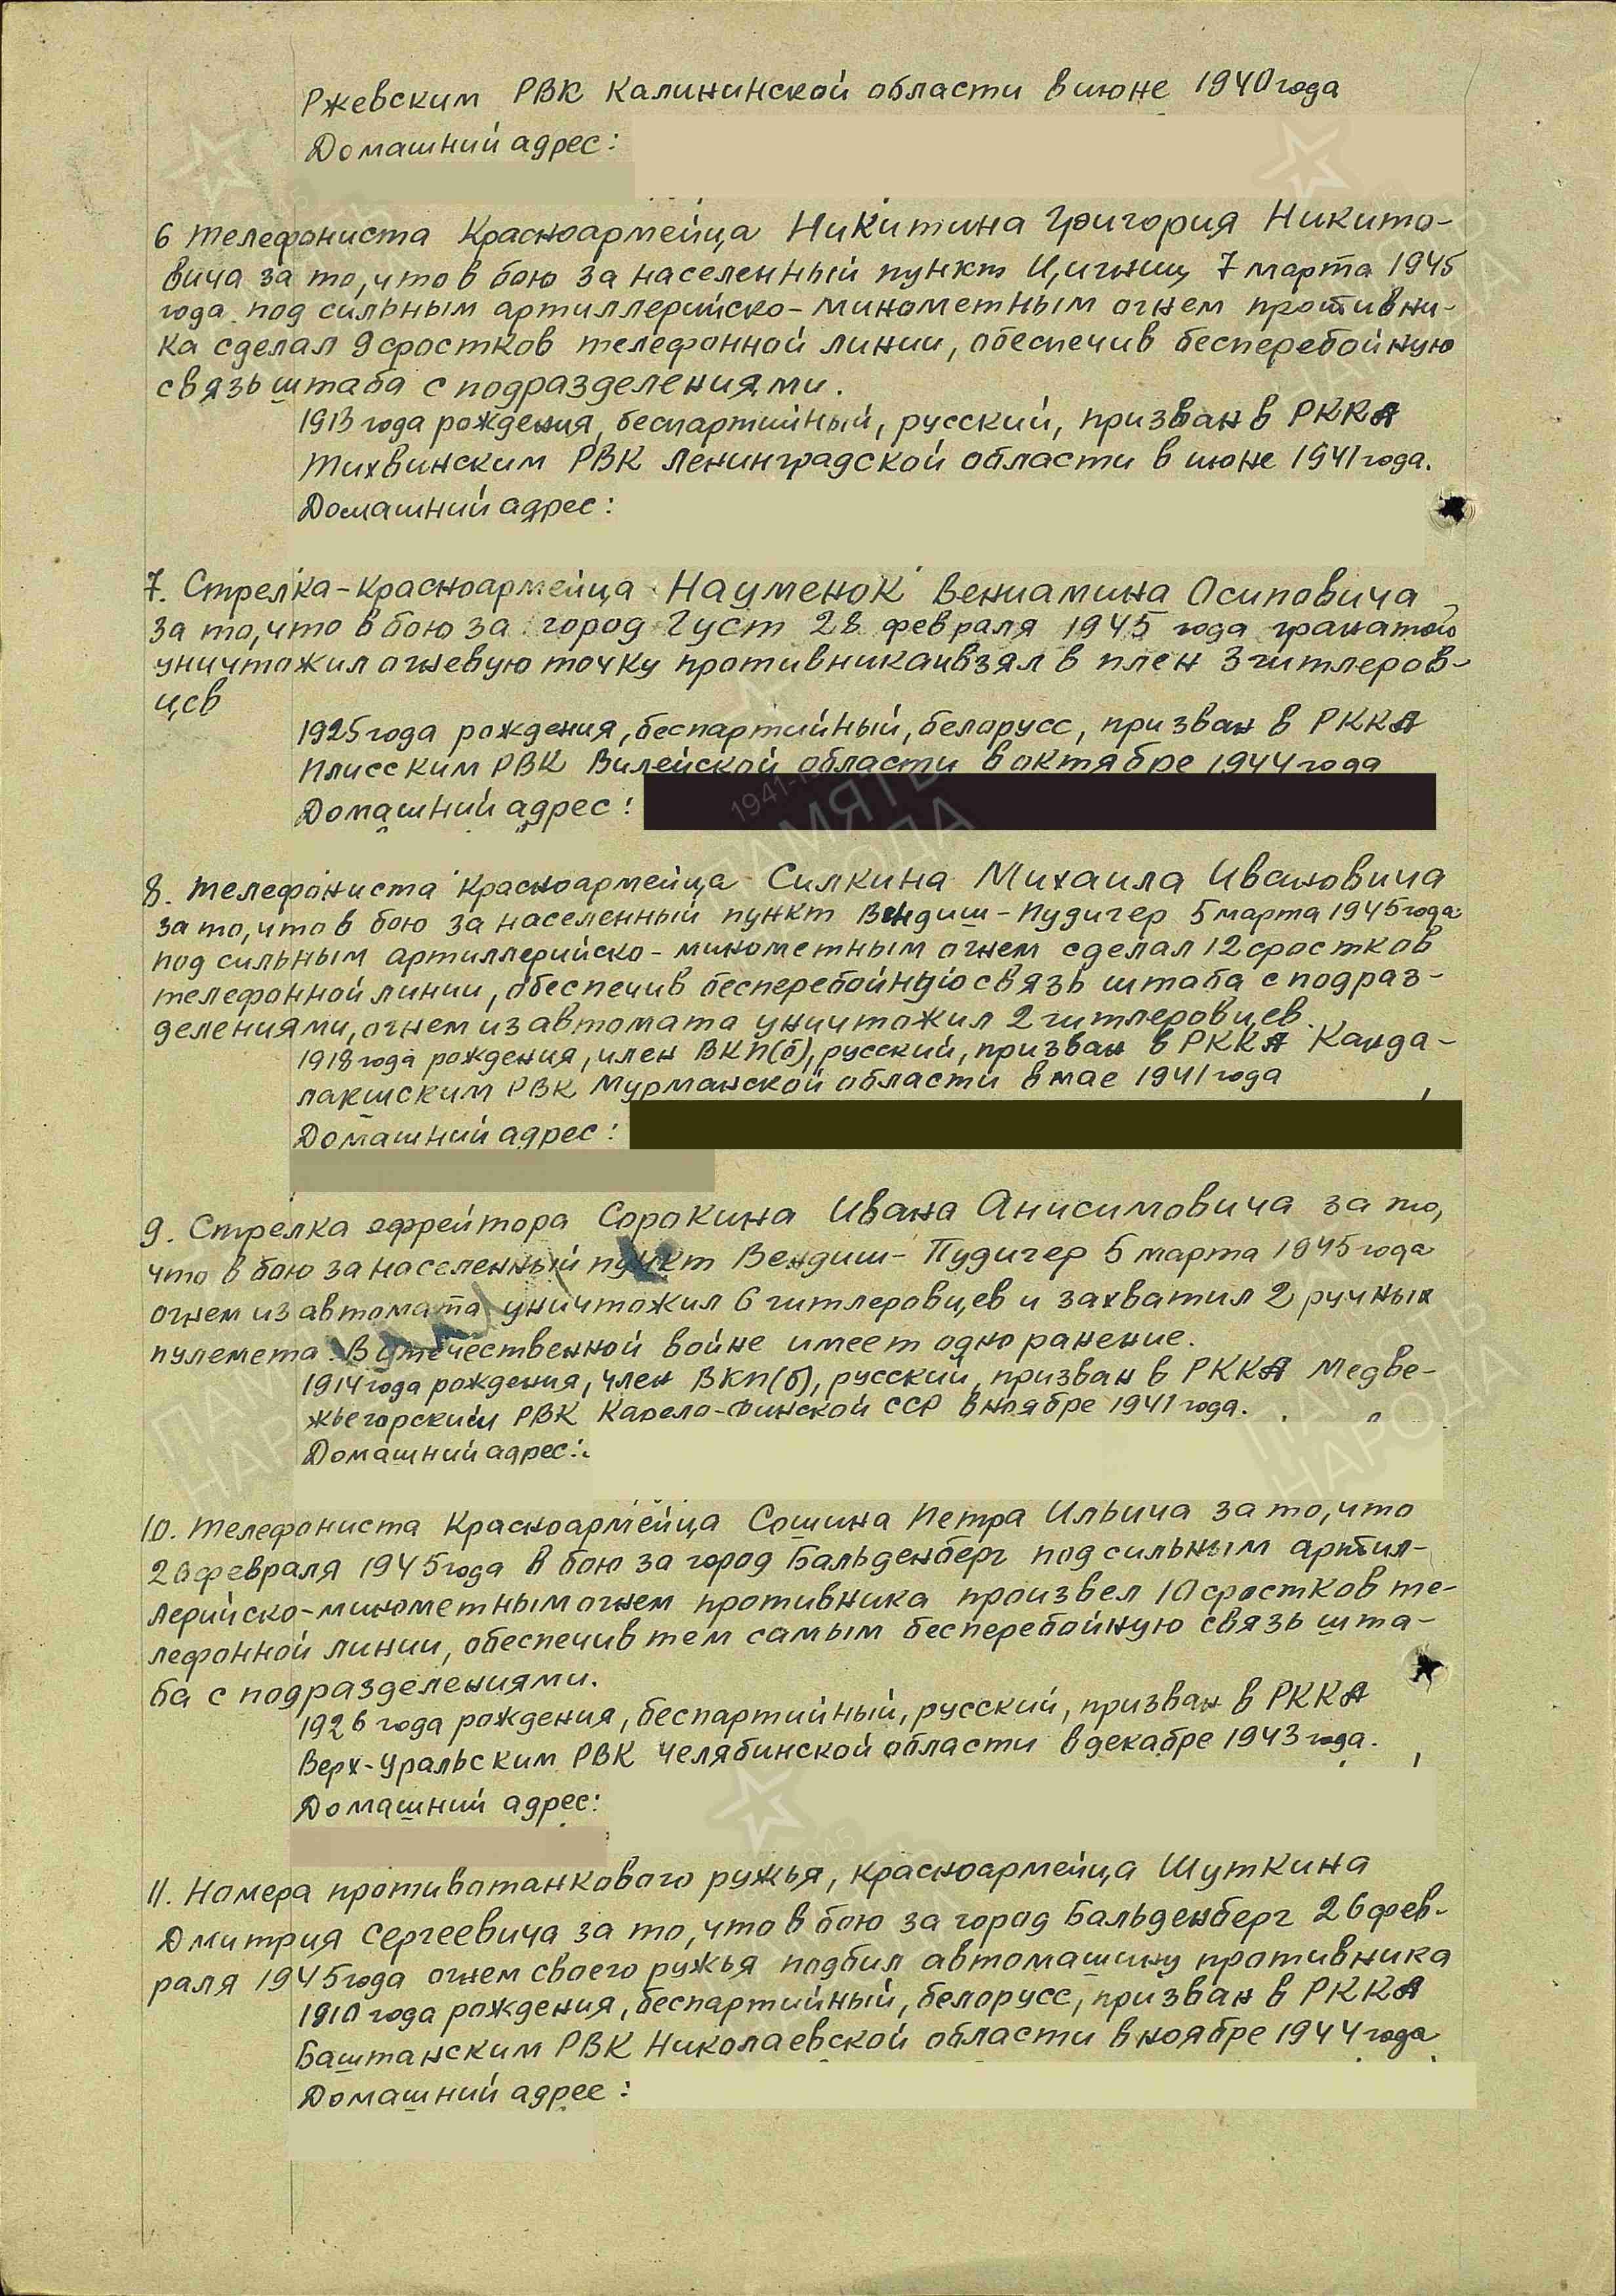 Ржевским РВК Калининской области в июне 1940 года
Домашний адрес:
6 Телефониста Красноармейца Никитина Григория Никито-
вича за то, что в бою за населенный пункт Цигниц 7 марта 1945
года под сильным артиллерийско-минометным огнем противни-
ка сделал 9 сростков телефонной линии, обеспечив бесперебойную
связь штаба с подразделениями.
1913 года рождения, беспартийный, русский, призван в РККА
Тихвинским РВК Ленинградской области в июне 1941 года.
Домашний адрес:
7. Стрелка-красноармейца Науменок Вениамина Осиповича
за то, что в бою за город Густ 28 февраля 1945 года гранатой
уничтожил огневую точку противника и взял в плен 3 гитлеров-
цев
1925 года рождения, беспартийный, белорусс, призван в РККА
Плисским РВК Вилейской области в октябре 1944 года
Домашний адрес:
8. Телефониста Красноармейца Силкина Михаила Ивановича
за то, что в бою за населенный пункт Вендиш-Пудигер 5 марта 1945 года
под сильным артиллерийско-минометным огнем сделал 12 сростков
телефонной линии, обеспечив бесперебойную связь штаба с подраз-
делениями, огнем из автомата уничтожил 2 гитлеровцев.
1918 года рождения, член ВКП(б), русский, призван в РККА Канда-
лакшским РВК Мурманской области в мае 1941 года
Домашний адрес:
9. Стрелка ефрейтора Сорокина Ивана Анисимовича за то,
что в бою за населенный пункт Вендиш-Пудигер 5 марта 1945 года
огнем из автомата уничтожил 6 гитлеровцев и захватил 2 ручных
пулемета. В Отечественной войне имеет одно ранение.
1914 года рождения, член ВКП(б), русский, призван в РККА Медве-
жьегорским РВК Карело-Финской ССР в ноябре 1941 года.
Домашний адрес:
10. Телефониста Красноармейца Сошина Петра Ильича за то, что
26 февраля 1945 года в бою за город Бальденберг под сильным артил-
лерийско-минометным огнем противника произвел 10 сростков те-
лефонной линии, обеспечив тем самым бесперебойную связь шта-
ба с подразделениями.
1926 года рождения, беспартийный, русский, призван в РККА
Верх-Уральским РВК Челябинской области в декабре 1943 года.
Домашний адрес:
11. Номера противотанкового ружья, красноармейца Шуткина
Дмитрия Сергеевича за то, что в бою за город Бальденберг 26 фев-
раля 1945 года огнем своего ружья подбил автомашину противника
1910 года рождения, беспартийный, белорусс, призван в РККА
Баштанским РВК Николаевской области в ноябре 1944 года
Домашний адрес: